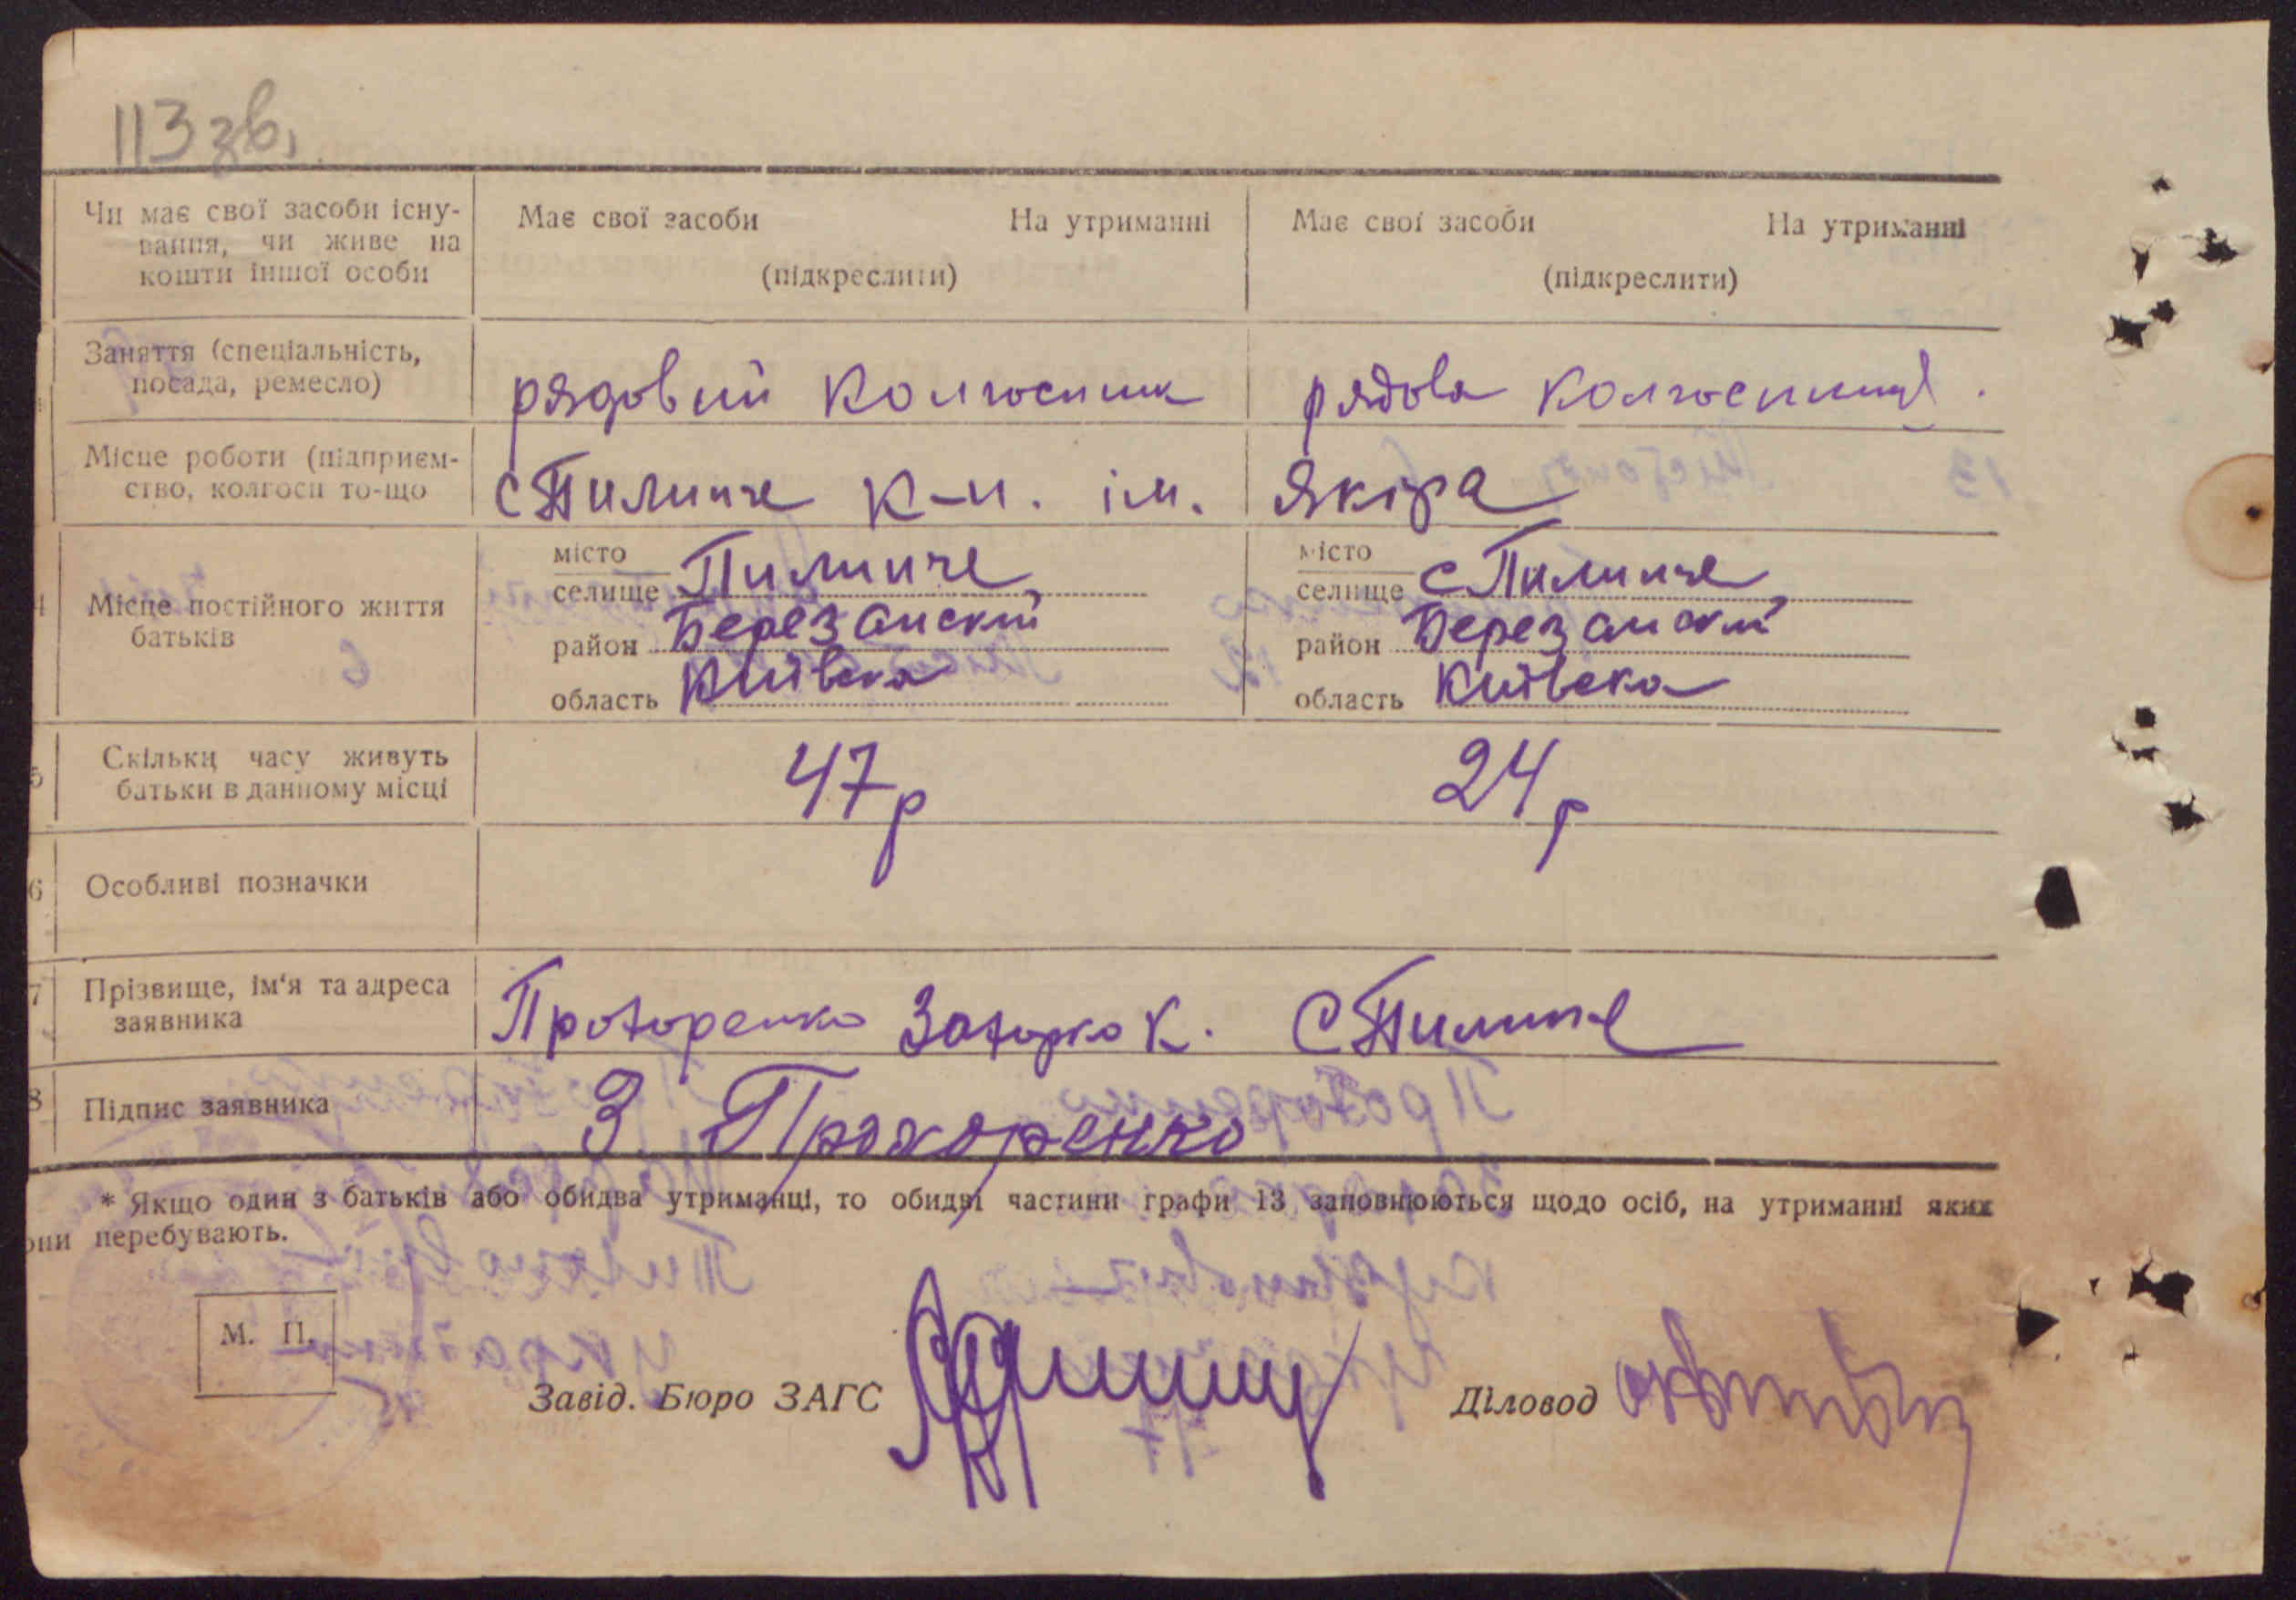 113 зв.
Чи має свої засоби існу-
вання, чи живе на
кошти іншої особи
Має свої засоби На утриманні
(підкреслити)
Має свої засоби На утриманні
(підкреслити)
Заняття (спеціальність,
посада, ремесло)
рядовий колгосник
рядова колгосниця.
Місце роботи (підприєм-
ство, колгосп то-що
с Пилипче к-п. ім. Якіра
4 Місце постійного життя
батьків
місто
селище Пилипче
район Березанский
область Київска
місто
селище с Пилипче
район Березанский
область Київска
5 Скільки часу живуть
батьки в данному місці
47 р
24 р
6 Особливі позначки
7 Прізвище, ім'я та адреса
заявника
Прохоренко Захарко К. с Пилипче
8 Підпис заявника
З Прохоренко
* Якщо один з батьків або обидва утриманці, то обидві частини графи 13 заповнюються щодо осіб, на утриманні яких
они перебувають.
М. П.
Завід. Бюро ЗАГС
Діловод